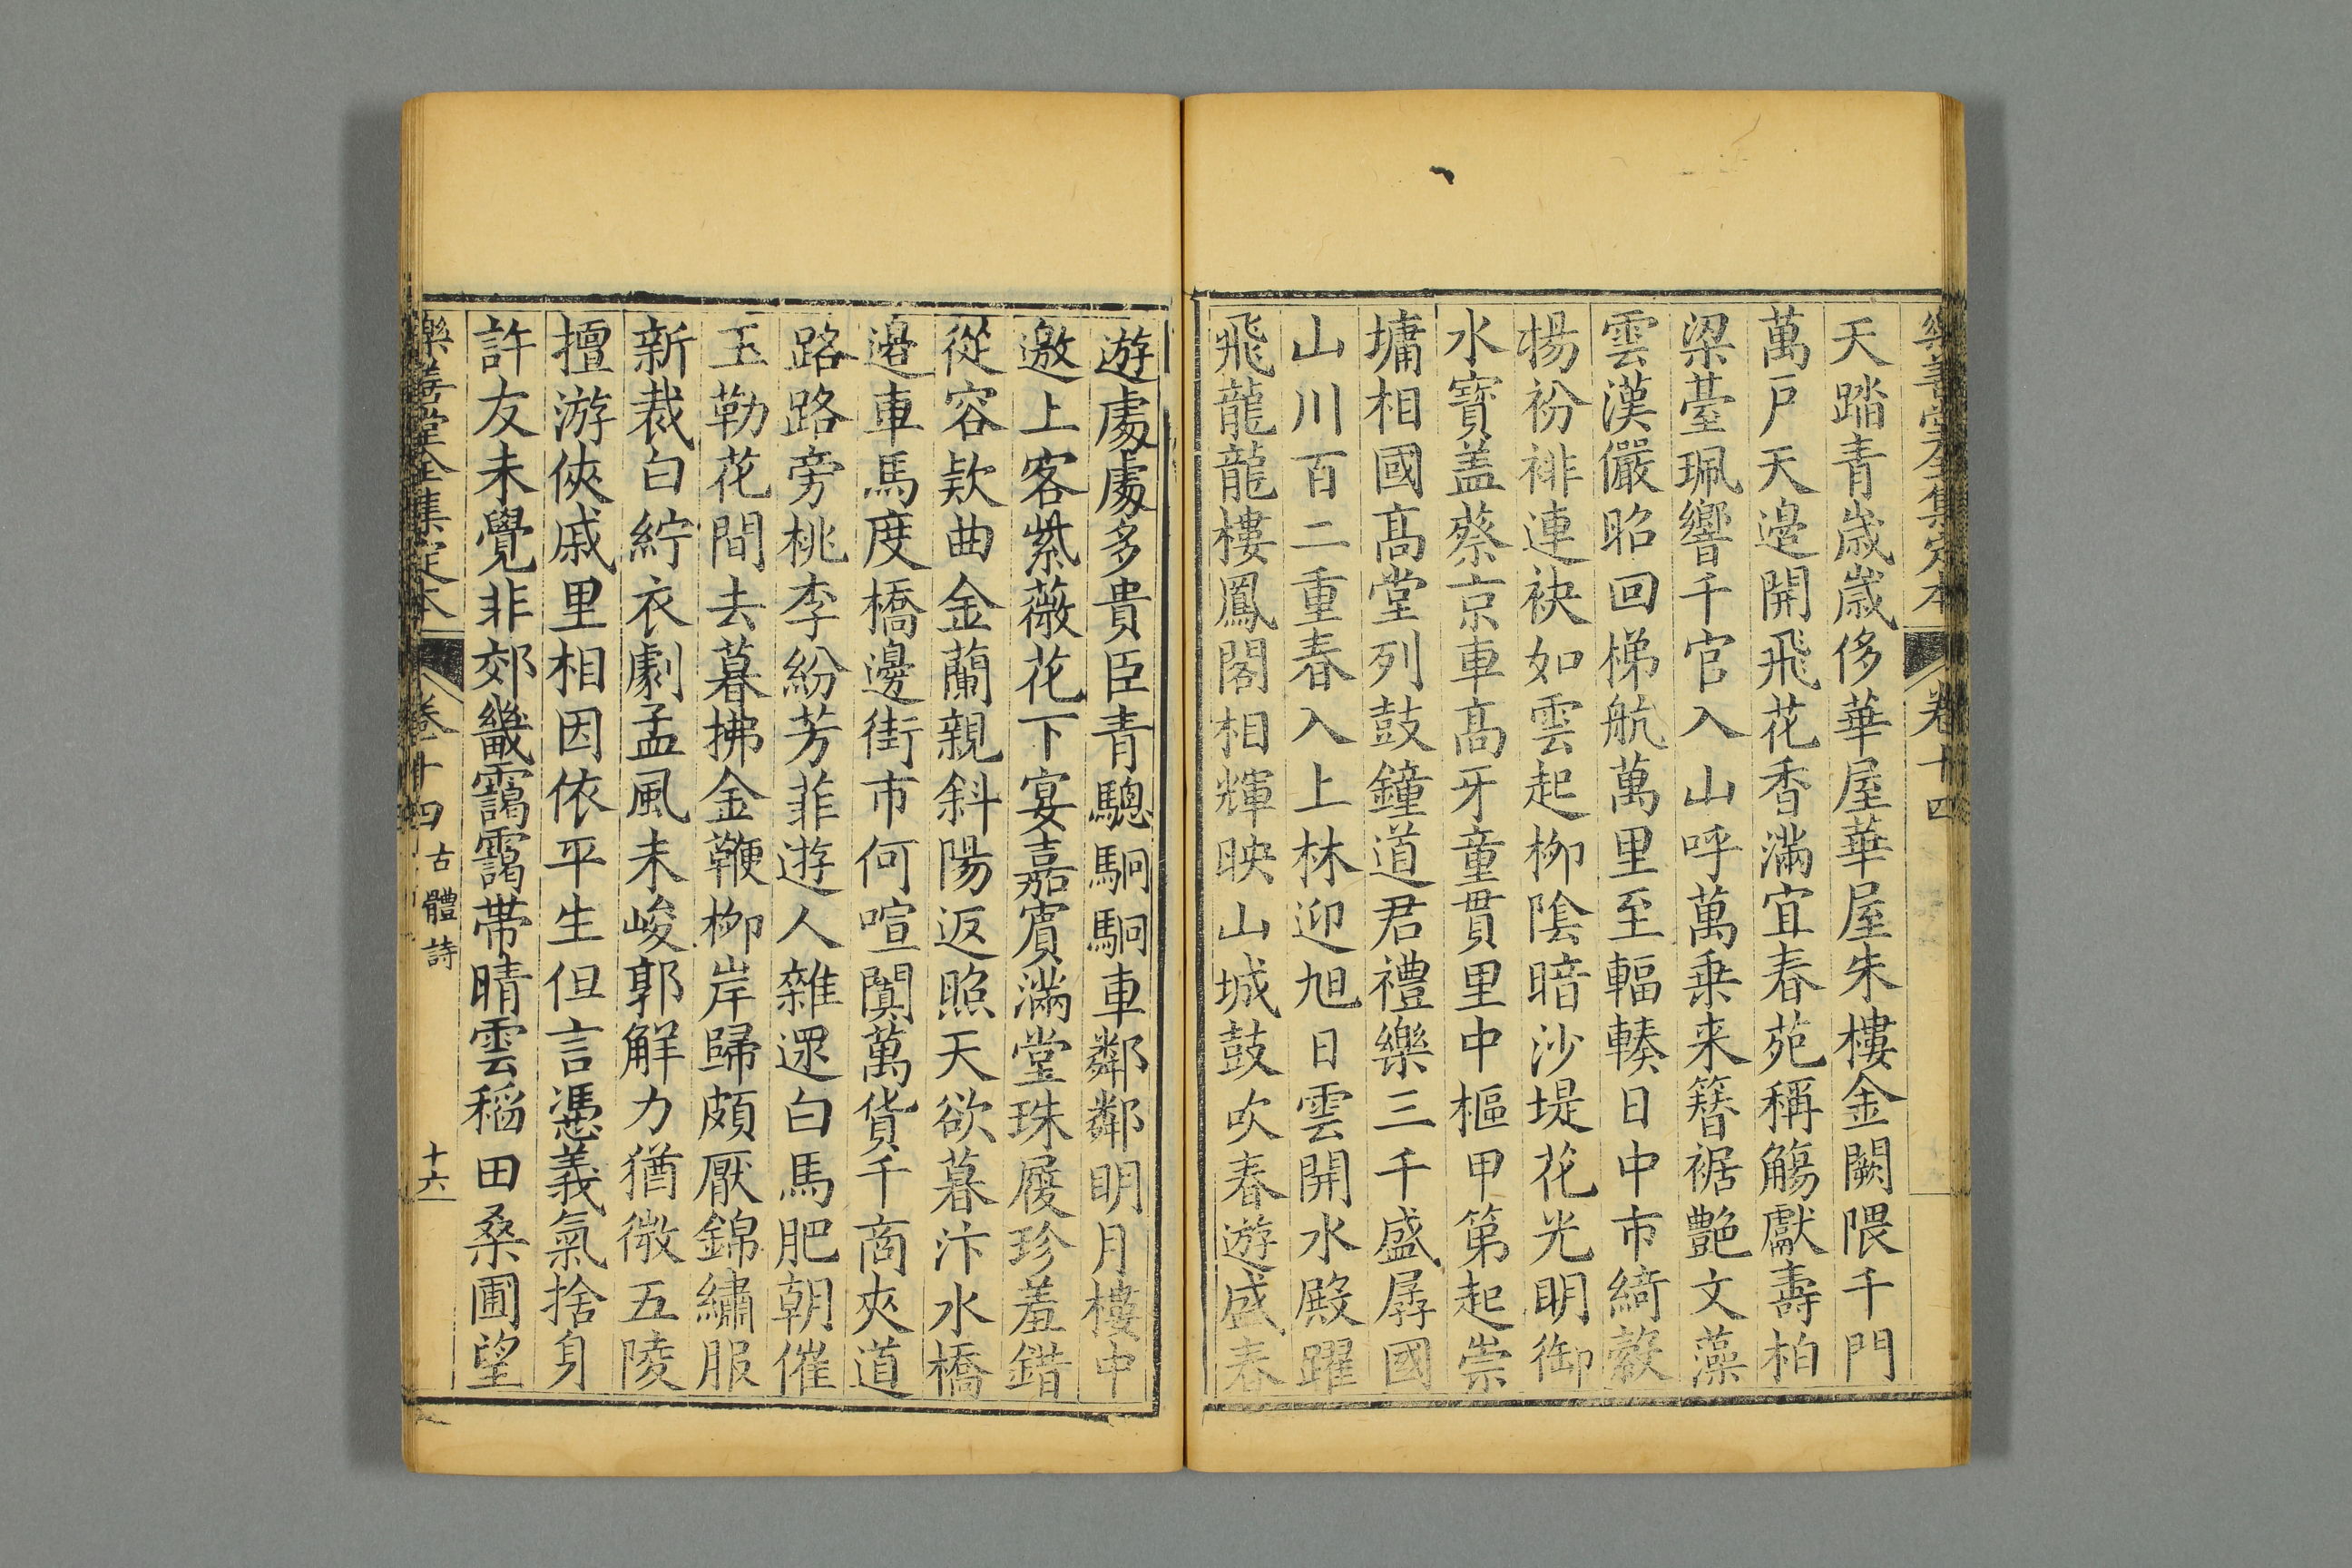 樂善堂全集定本 卷十四
天踏青歲歲侈華屋華屋朱樓金闕隈千門
萬戸天邉開飛花香滿宜春苑稱觴獻壽柏
梁臺珮響千官入山呼萬乗来簪裾艶文藻
雲漢儼昭回梯航萬里至輻輳日中市綺縠
楊衯裶連袂如雲起栁陰暗沙堤花光明御
水寳盖蔡京車髙牙童貫里中樞甲第起崇
墉相國髙堂列鼓鐘道君禮樂三千盛孱國
山川百二重春入上林迎旭日雲開水殿躍
飛龍龍樓鳳閣相輝映山城鼓吹春遊盛春
遊處處多貴臣青驄駉駉車鄰鄰明月樓中
邀上客紫薇花下宴嘉賓滿堂珠履珍羞錯
從容欵曲金蘭親斜陽返照天欲暮汴水橋
邉車馬度橋邊街市何喧闐萬貨千商夾道
路路旁桃李紛芳菲遊人雜遝白馬肥朝催
玉勒花間去暮拂金鞭栁岸歸頗厭錦繡服
新裁白紵衣劇孟風未峻郭解力猶微五陵
擅游俠戚里相因依平生但言憑義氣捨身
許友未覺非郊畿靄靄帶晴雲稻田桑圃望
樂善堂全集定本 卷十四 古體詩 十六